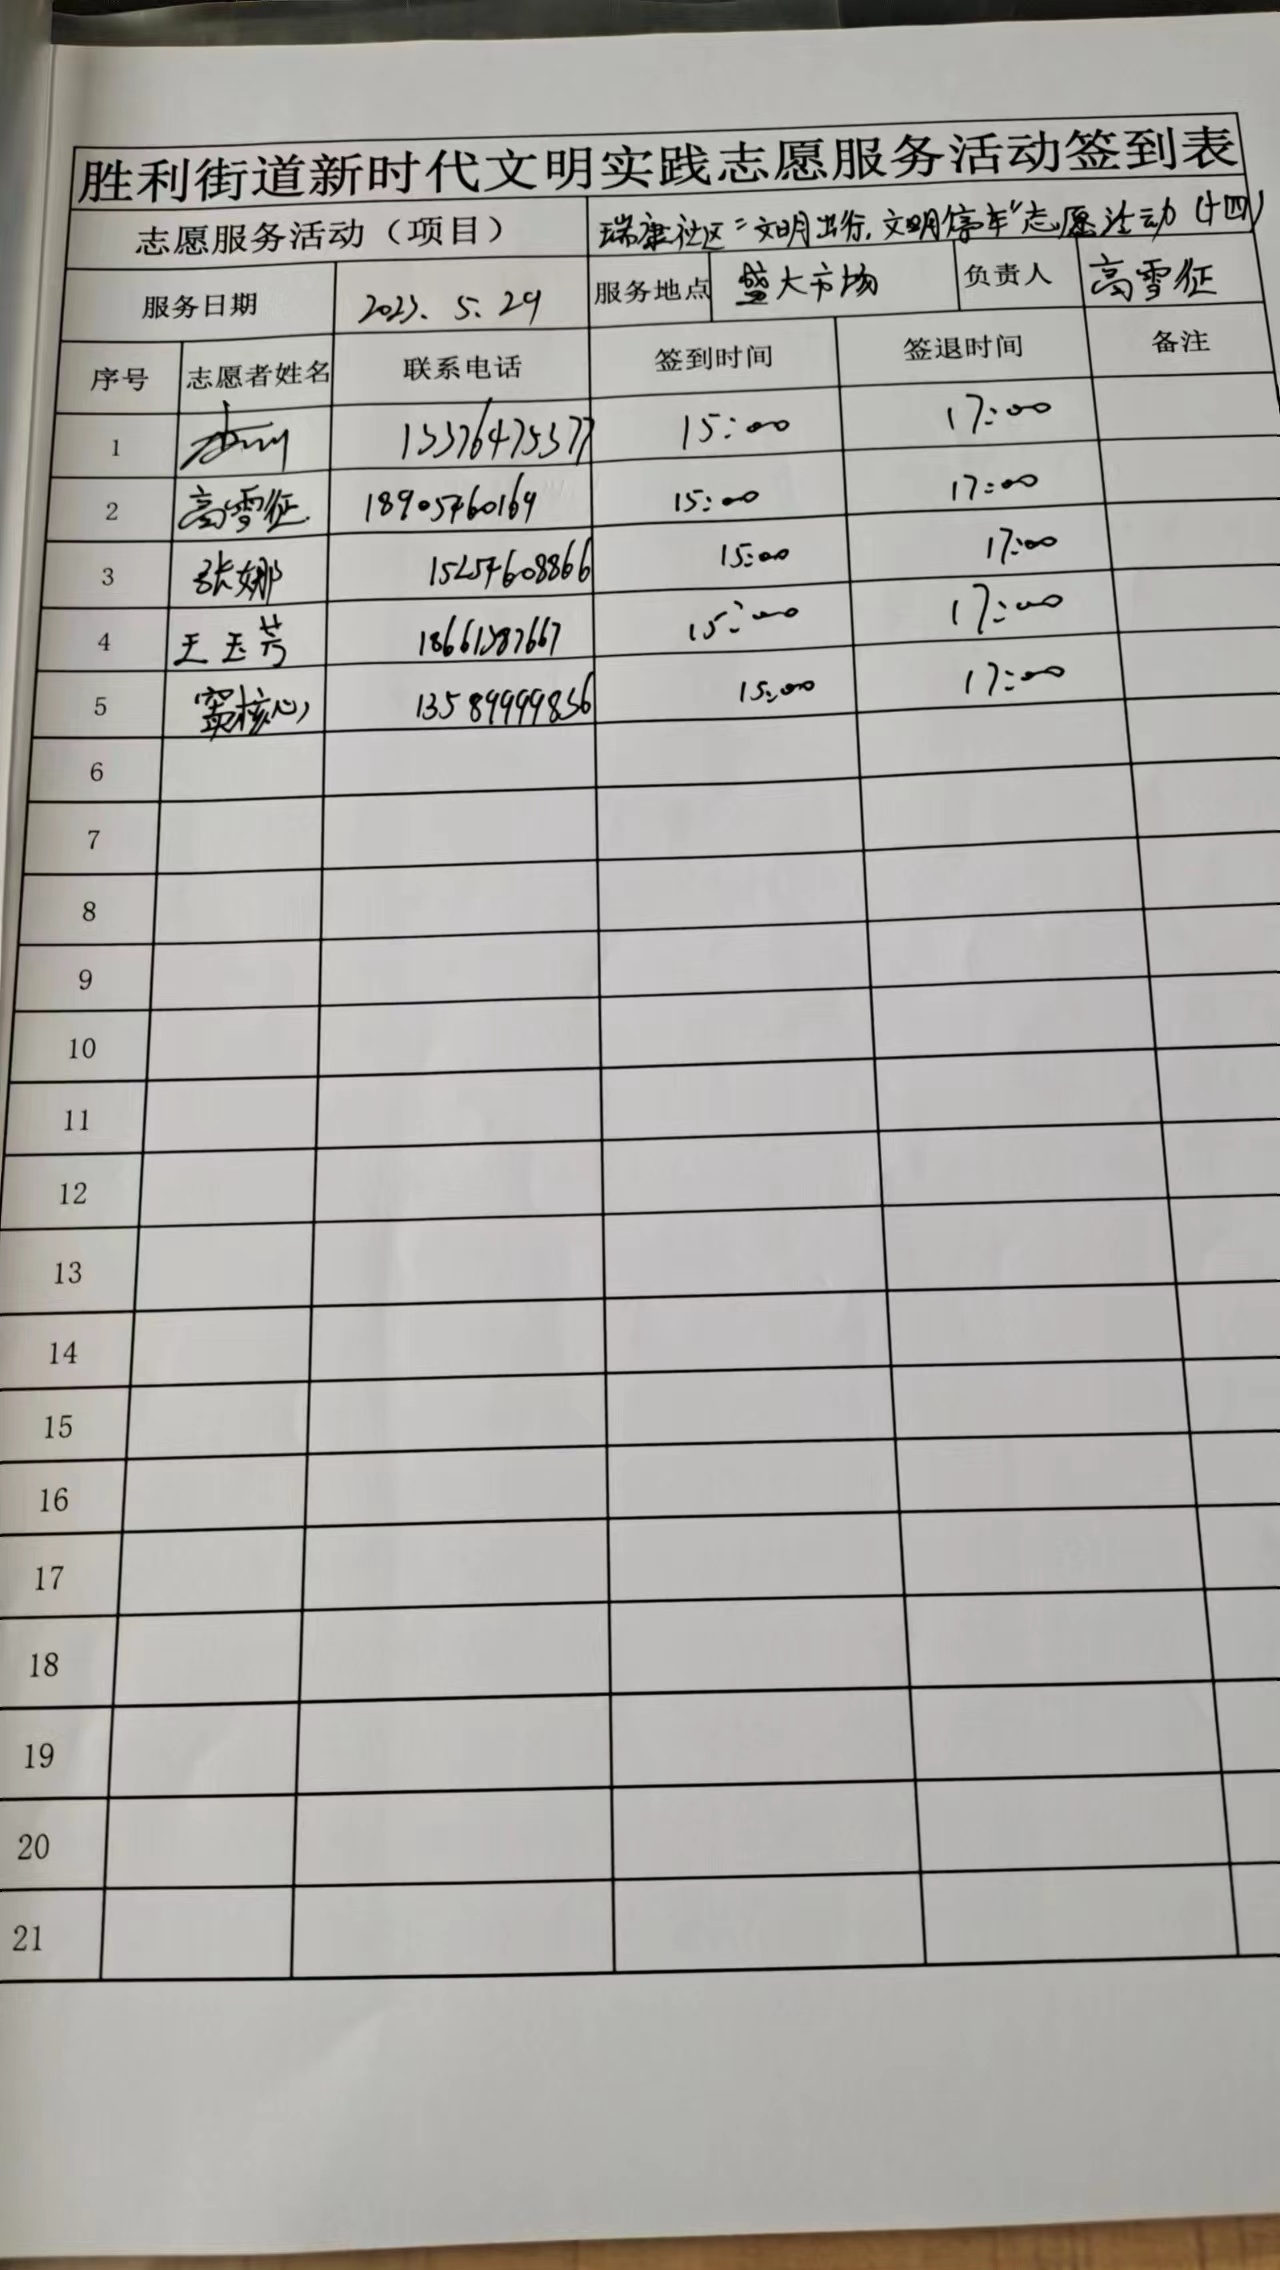 胜利街道新时代文明实践志愿服务活动签到表
志愿服务活动（项目） 瑞康社区"文明出行,文明停车"志愿活动（十四）
服务日期 2023. 5. 29 服务地点 盛大市场 负责人 高雪征
序号 志愿者姓名 联系电话 签到时间 签退时间 备注
1 15:00 17:00
2 高雪征 18905460169 15:00 17:00
3 张娜 15254608866 15:00 17:00
4 王玉芳 15:00 17:00
5 窦核心 13589999856 15:00 17:00
6
7
8
9
10
11
12
13
14
15
16
17
18
19
20
21